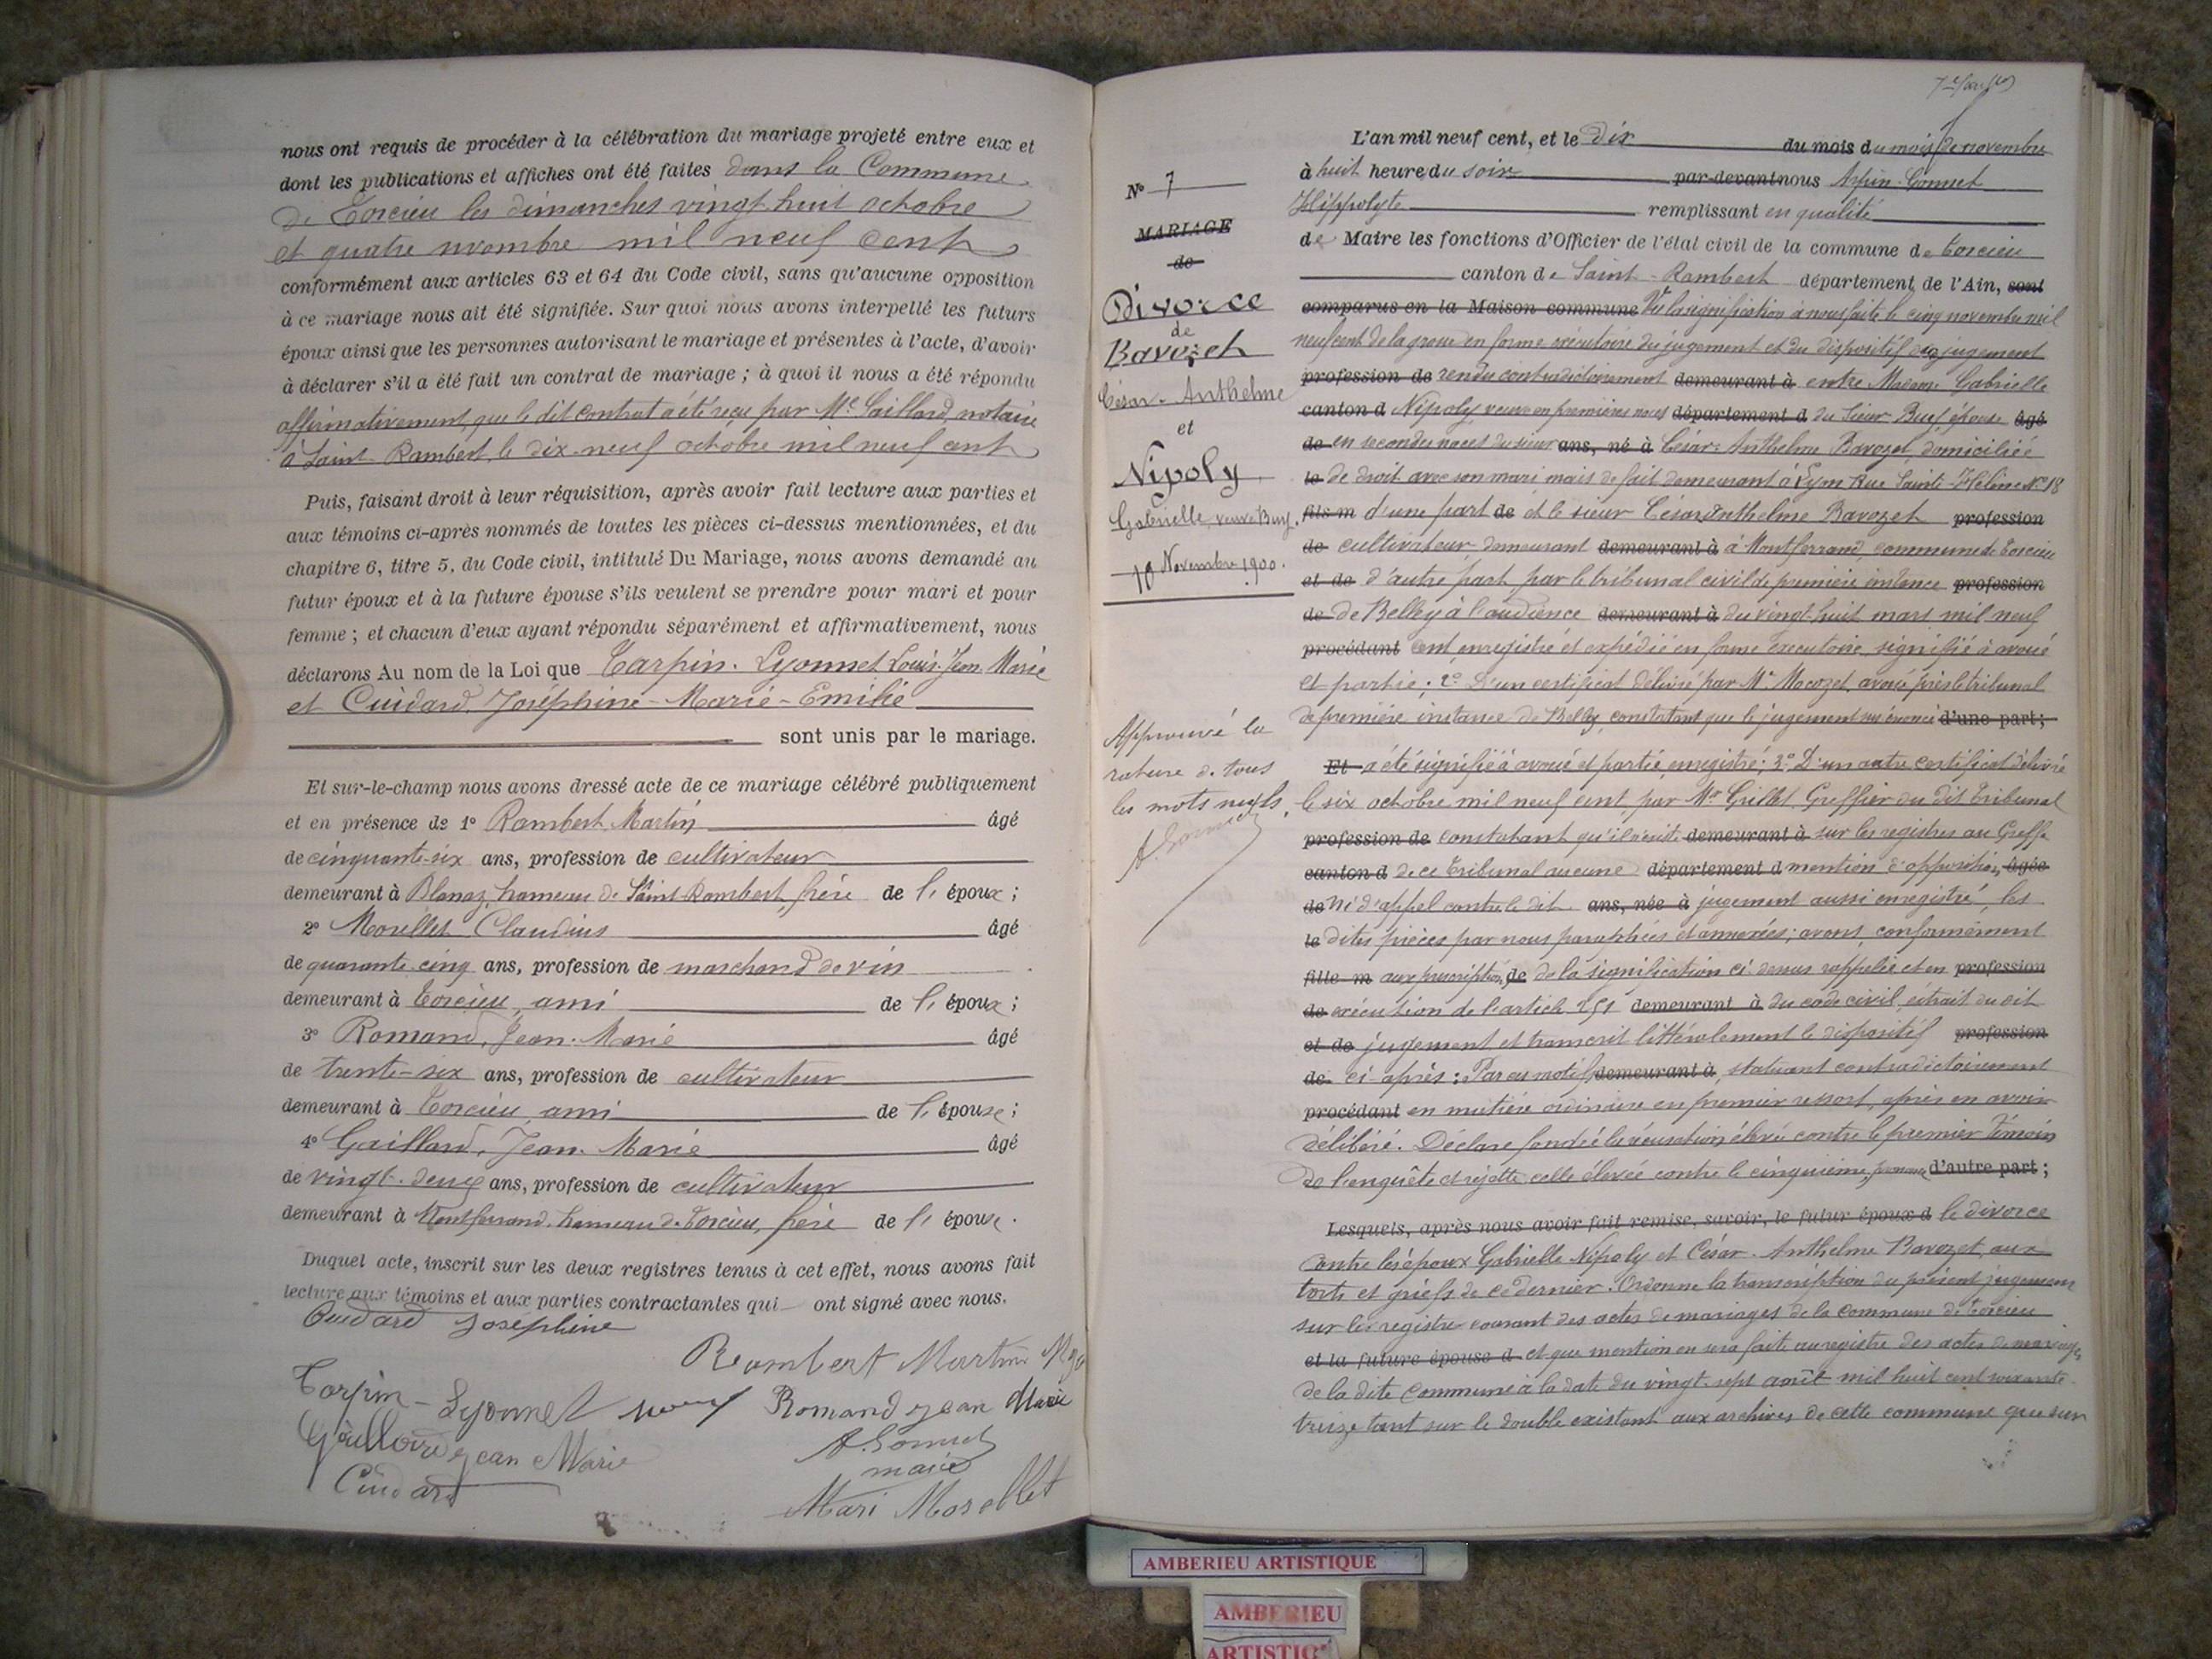 nous ont requis de procéder à la célébration du mariage projeté entre eux et
dont les publications et affiches ont été faites dans la Commune
de Torcieu les dimanches vingt huit octobre
et quatre novembre mil neuf cent
conformément aux articles 63 et 64 du Code civil, sans qu'aucune opposition
à ce mariage nous ait été signifiée. Sur quoi nous avons interpellé les futurs
époux ainsi que les personnes autorisant le mariage et présentes à l'acte, d'avoir
à déclarer s'il a été fait un contrat de mariage ; à quoi il nous a été répondu
affirmativement, que le dit contrat a été reçu par Me Gaillard, notaire
à Saint Rambert, le dix-neuf octobre mil neuf cent
Puis, faisant droit à leur réquisition, après avoir fait lecture aux parties et
aux témoins ci-après nommés de toutes les pièces ci-dessus mentionnées, et du
chapitre 6, titre 5, du Code civil, intitulé Du Mariage, nous avons demandé au
futur époux et à la future épouse s'ils veulent se prendre pour mari et pour
femme ; et chacun d'eux ayant répondu séparément et affirmativement, nous
déclarons Au nom de la Loi que Tarpin-Lyonnet Louis-Jean Marie
et Cuidard Joséphine-Marie-Emilie
sont unis par le mariage.
Et sur-le-champ nous avons dressé acte de ce mariage célébré publiquement
et en présence de 1° Rambert Martin âgé
de cinquante-six ans, profession de cultivateur
demeurant à Blanaz, hameau de Saint-Rambert, frère de l'époux ;
2° Morellet Claudius âgé
de quarante cinq ans, profession de marchand de vin
demeurant à Torcieu, ami de l'époux ;
3° Romand, Jean-Marie âgé
de trente-six ans, profession de cultivateur
demeurant à Torcieu, ami de l'épouse ;
4° Gaillard, Jean-Marie âgé
de vingt-deux ans, profession de cultivateur
demeurant à Montferrand, hameau de Torcieu, frère de l'épouse.
Duquel acte, inscrit sur les deux registres tenus à cet effet, nous avons fait
lecture aux témoins et aux parties contractantes qui ont signé avec nous.
Cuidard Joséphine
Rambert Martin
Tarpin-Lyonnet Romand Jean Marie
Gaillard Jean Marie
maire
Cuidard
Mari Morellet
N° 7
MARIAGE
de
Divorce
de
Bavozet
César-Anthelme
et
Nipoly
Gabrielle, veuve Buy.
10 Novembre 1900.
Approuvé la
rature de tous
les mots nuls.
L'an mil neuf cent, et le dix du mois du mois de novembre
à huit heure du soir par-devant nous Arpin-Gonnet
Hippolyte remplissant en qualité
de Maire les fonctions d'Officier de l'état civil de la commune de Torcieu
canton de Saint-Rambert département de l'Ain, sont
comparus en la Maison commune Vu la signification à nous faite le cinq novembre mil
neuf cent de la grosse en forme exécutoire du jugement et du dispositif du jugement
profession de rendu contradictoirement demeurant à entre Madame Gabrielle
canton d Nipoly, veuve en premières noces département d du Sieur Buy, épouse âgé
de en secondes noces du sieur ans, né à César-Anthelme Bavozet, domiciliée
le de droit avec son mari mais de fait demeurant à Lyon Rue Sainte-Hélène N° 18
fils m d'une part de et le sieur César Anthelme Bavozet profession
de cultivateur, demeurant demeurant à à Montferrand, commune de Torcieu
et de d'autre part par le tribunal civil de première instance profession
de de Belley à l'audience demeurant à du vingt-huit mars mil neuf
procédant cent enregistré et expédié en forme exécutoire, signifié à avoué
et partie ; 2° D'un certificat délivré par Me Macozet, avoué près le tribunal
de première instance de Belley, constatant que le jugement sus énoncé d'une part ;
Et a été signifié à avoué et partie, enregistré ; 3° D'un autre certificat délivré
le six octobre mil neuf cent, par Mr Grillet Greffier du dit tribunal
profession de constatant qu'il n'exist demeurant à sur les registres au Greffe
canton d de ce tribunal aucune département d mention d'opposition, âgée
de ni d'appel contre le dit ans, née à jugement aussi enregistré, les
le dites pièces par nous paraphées et annexées ; avons, conformément
fille m aux prescriptions de de la signification ci-dessus rappelée et en profession
de exécution de l'article 251 demeurant à du code civil, extrait du dit
et de jugement et transcrit littéralement le dispositif profession
de ci-après : Par ces motifs, demeurant à statuant contradictoirement
procédant en matière ordinaire en premier ressort, après en avoir
délibéré. Déclare fondée la récusation élevée contre le premier témoin
de l'enquête et rejette celle élevée contre le cinquième, d'autre part ;
Lesquels, après nous avoir fait remise, savoir, le futur époux d le divorce
entre les époux Gabrielle Nipoly et César-Anthelme Bavozet, aux
torts et griefs de ce dernier. Ordonne la transcription du présent jugement
sur le registre courant des actes de mariages de la commune de Torcieu
et la future épouse d et que mention en sera faite au registre des actes de mariages
de la dite commune à la date du vingt-sept août mil huit cent soixante-
treize tant sur le double existant aux archives de cette commune que sur
AMBERIEU ARTISTIQUE
AMBERIEU
ARTISTIQ